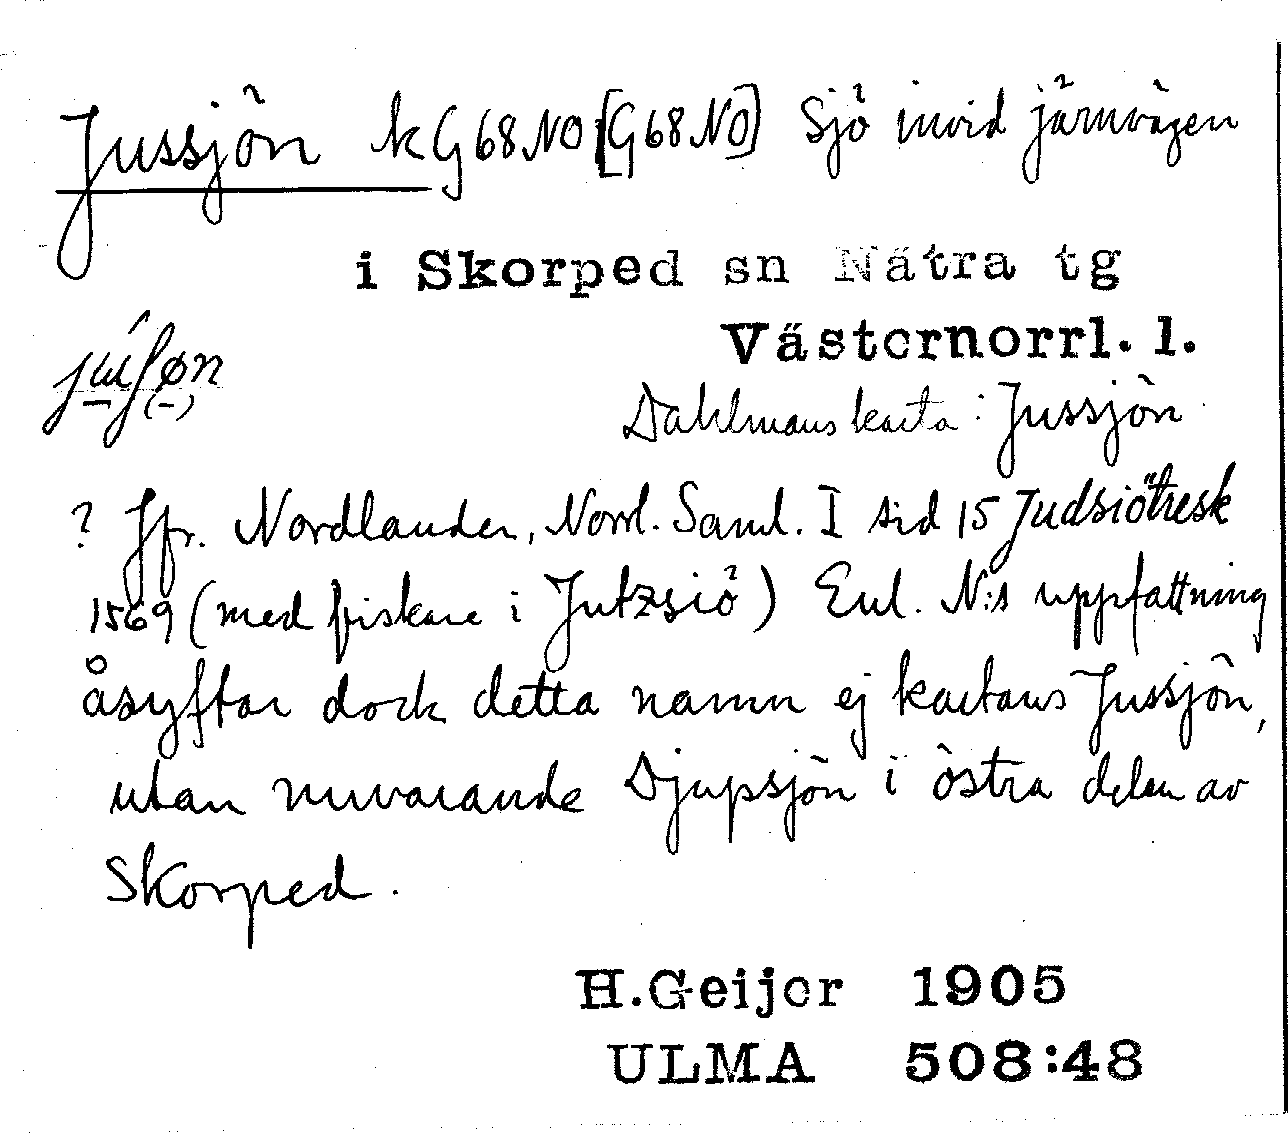 Jussjön k G 68 NO [G 68 NO] Sjö invid järnvägen
i Skorped sn Nätra tg
Västernorrl. l.
Dahlmans karta: Jussjön
? Jfr. Nordlander, Norrl. Saml. I sid 15 Judsiötresk
1569 (med fiskare i Jutzsiö) Enl. N:s uppfattning
åsyftar dock detta namn ej kartans Jussjön,
utan nuvarande Djupsjön i östra delen av
Skorped.
H.Geijer 1905
ULMA 508:48